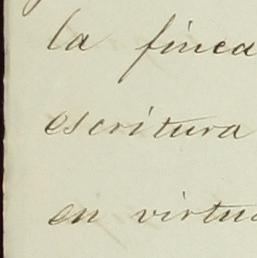 la finca
escritura
en virtu